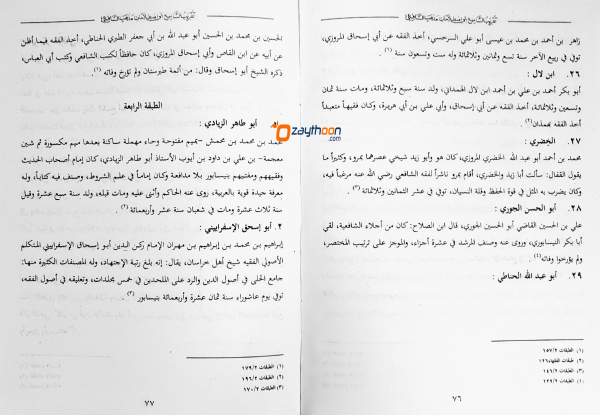 زاهر بن أحمد بن محمد بن عيسى أبو علي السرخسي، أخذ الفقه عن أبي إسحاق المروزي،
توفي في ربيع الآخر سنة تسع وثمانين وثلاثمائة وله ست وتسعون سنة (١).
٢٦. ابن لال :
أبو بكر أحمد بن علي بن أحمد ابن لال الهمداني، ولد سنة سبع وثلاثمائة، ومات سنة ثمان
وتسعين وثلاثمائة، أخذ الفقه عن أبي إسحاق، وأبي علي بن أبي هريرة، وكان فقيهاً متعبداً
أخذ الفقه بهمدان (٢).
٢٧. الخضري :
محمد بن أحمد أبو عبد الله الخضري المروزي، كان هو وأبو زيد شيخي عصرهما بمرو، وكثيراً ما
يقول القفال: سألت أبا زيد والخضري، أقام بمرو ناشراً لفقه الشافعي رضي الله عنه مرغباً فيه،
وكان يضرب به المثل في قوة الحفظ وقلة النسيان، توفي في عشر الثمانين وثلاثمائة (٣).
٢٨. أبو الحسن الجوري :
علي بن الحسين القاضي أبو الحسين الجوري، قال ابن الصلاح: كان من أجلاء الشافعية، لقي
أبا بكر النيسابوري، وروى عنه وصنف المرشد في عشرة أجزاء، والموجز على ترتيب المختصر،
ولم يؤرخوا وفاته (٤).
٢٩. أبو عبد الله الحناطي :
(١) الطبقات ١٥٧/٢
(٢) طبقات الفقهاء
(٣) الطبقات ١٤٦/٢
(٤) الطبقات ١٢٩/٢
٧٦
الحسين بن محمد بن الحسين أبو عبد الله بن أبي جعفر الطبري الحناطي، أخذ الفقه فيما أظن
عن أبيه عن ابن القاص وأبي إسحاق المروزي، كان حافظاً لكتب الشافعي وكتب أبي العباس،
ذكره الشيخ أبو إسحاق وقال: من أئمة طبرستان ولم تؤرخ وفاته (١).
الطبقة الرابعة :
أبو طاهر الزيادي :
محمد بن محمد بن محمش -بميم مفتوحة وحاء مهملة ساكنة بعدها ميم مكسورة ثم شين
معجمة- بن علي بن داود بن أيوب الأستاذ أبو طاهر الزيادي، كان إمام أصحاب الحديث
وفقيههم ومفتيهم بنيسابور بلا مدافعة وكان إماماً في علم الشروط، وصنف فيه كتاباً، وله
معرفة جيدة قوية بالعربية، روى عنه الحاكم وأثنى عليه ومات قبله، ولد سنة سبع عشرة وقيل
سنة ثلاث عشرة ومات في شعبان سنة عشر وأربعمائة (٢).
٢. أبو إسحق الإسفراييني :
إبراهيم بن محمد بن إبراهيم بن مهران الإمام ركن الدين أبو إسحاق الإسفراييني المتكلم
الأصولي الفقيه شيخ أهل خراسان، يقال: إنه بلغ رتبة الإجتهاد، وله المصنفات الكثيرة منها:
جامع الحلى في أصول الدين والرد على الملحدين في خمس مجلدات، وتعليقه في أصول الفقه،
توفي يوم عاشوراء سنة ثمان عشرة وأربعمائة بنيسابور (٣).
(١) الطبقات ١٧٩/٢
(٢) الطبقات ١٩٦/٢
(٣) الطبقات ١٧٠/٢
٧٧
zaythoon.com